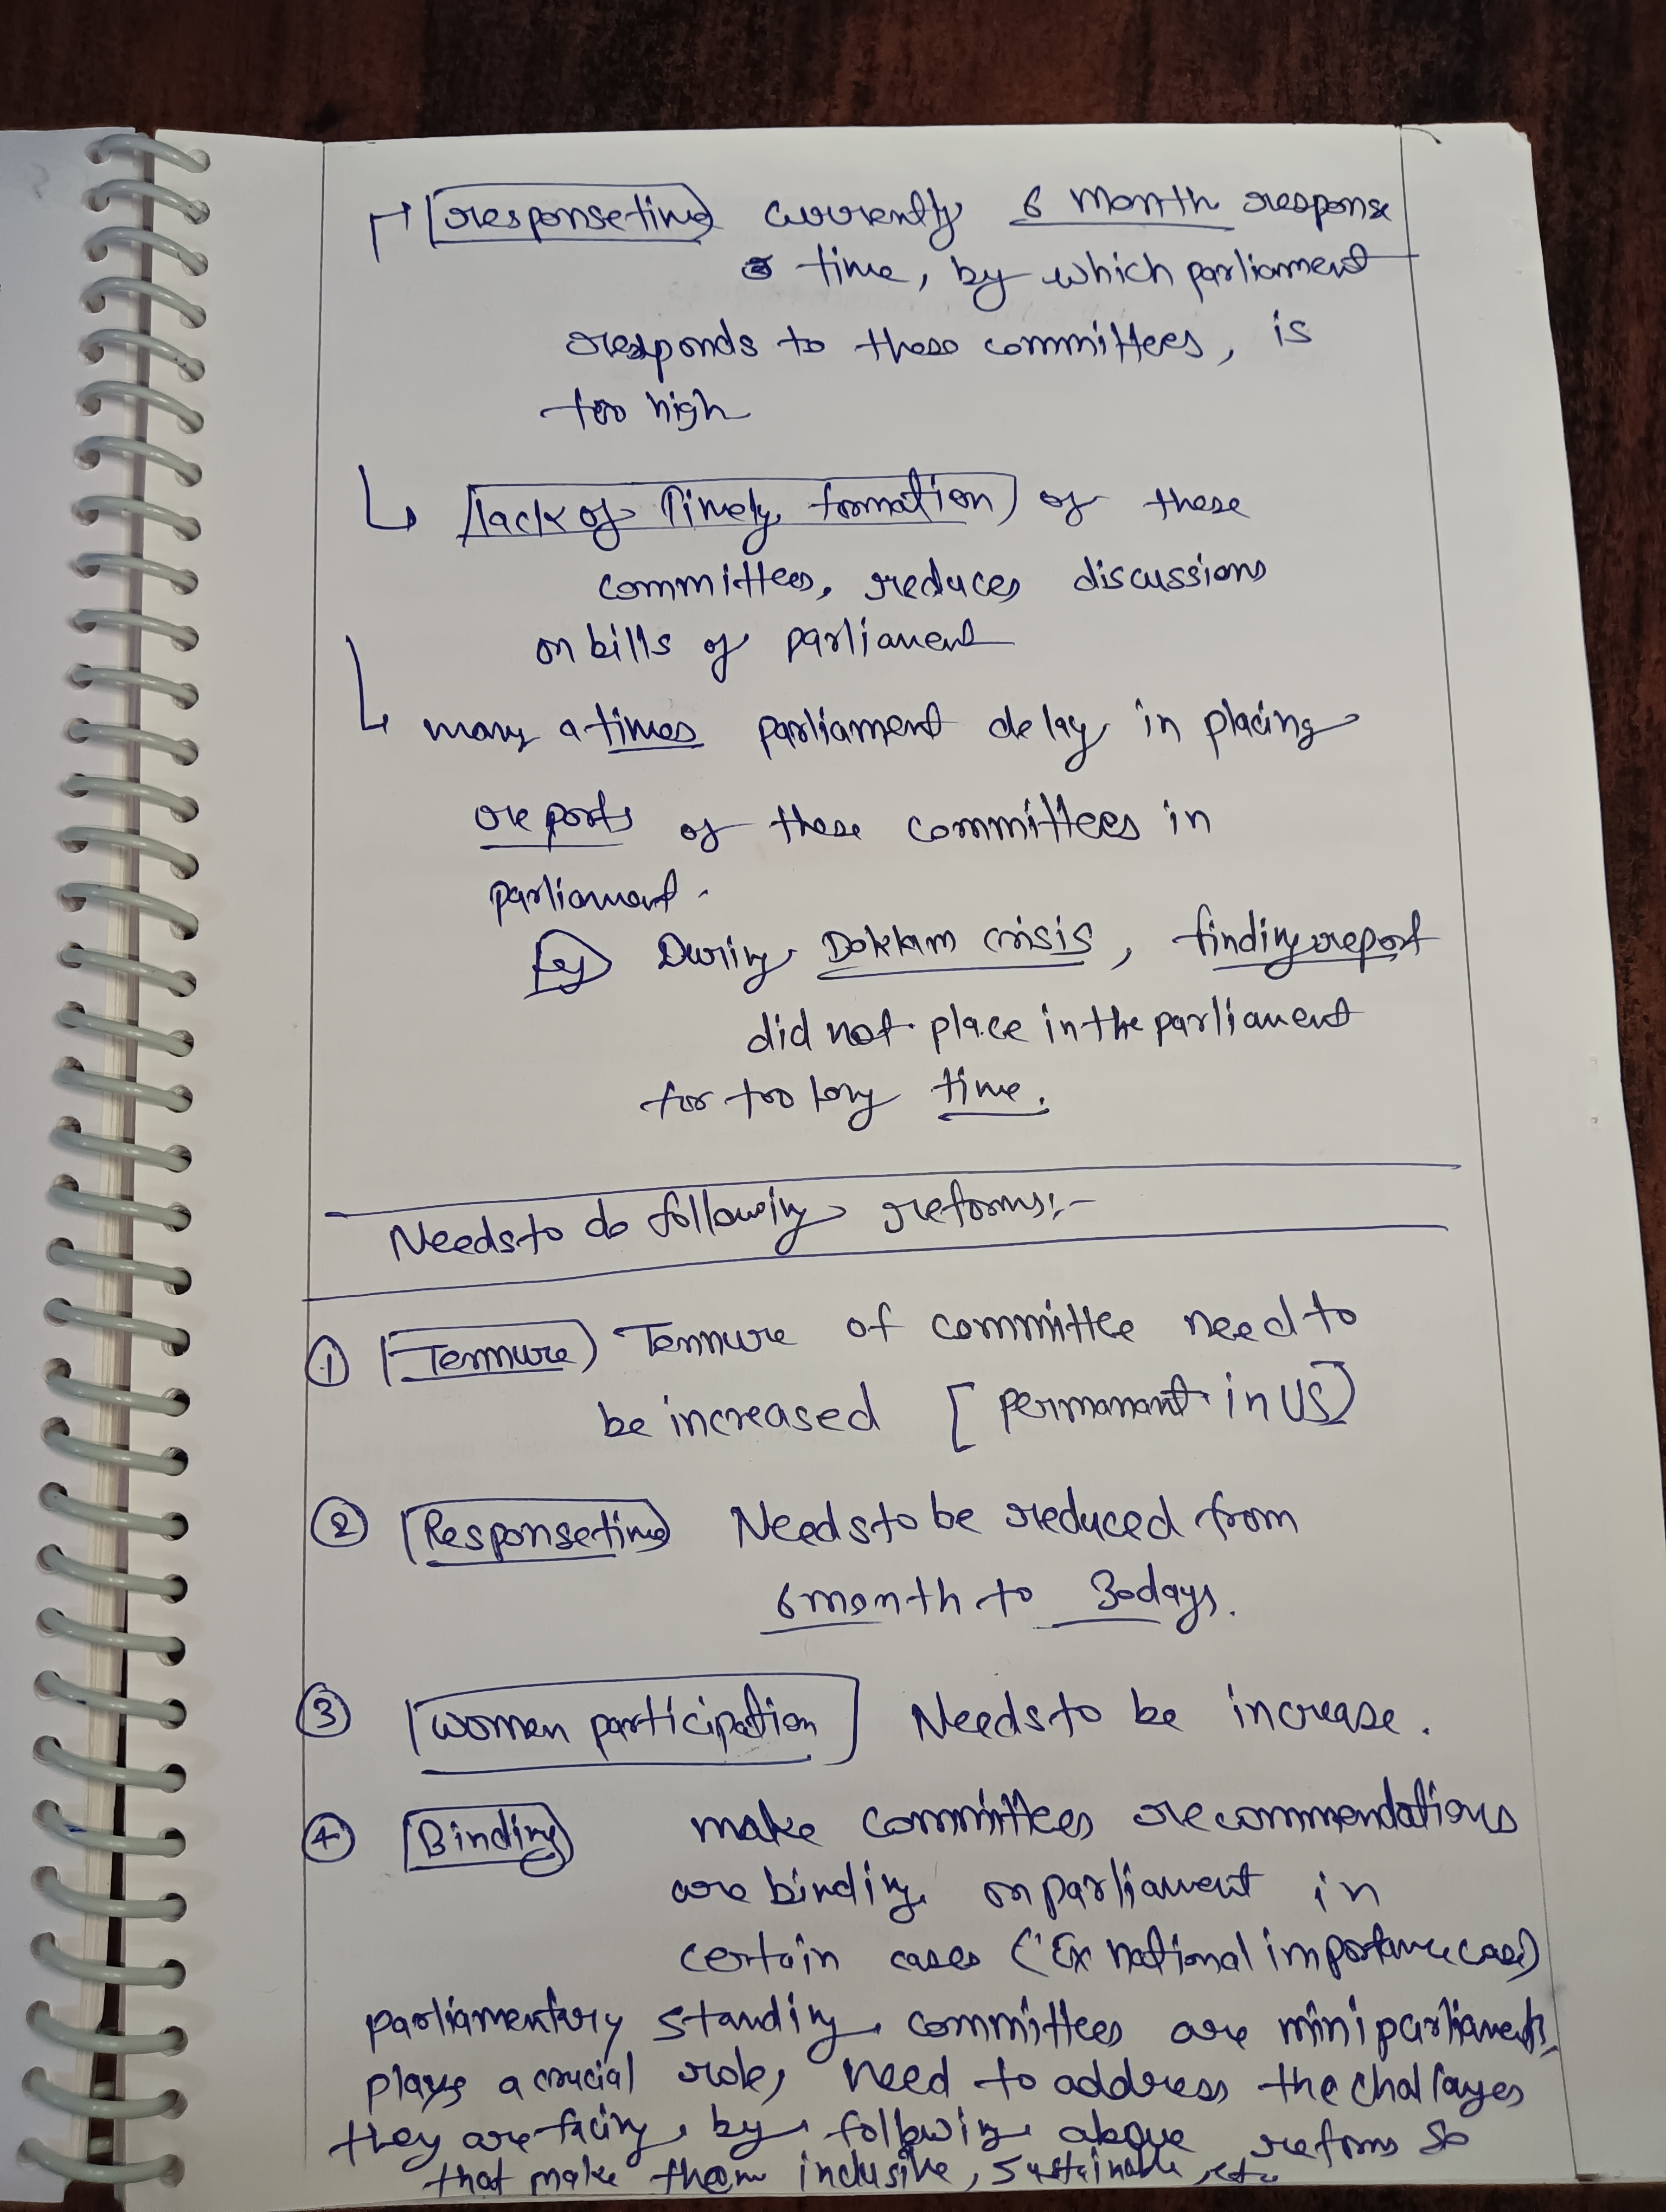 responsetime currently 6 Month response
time, by which parliament
responds to these committees, is
too high
lack of Timely formation of these
committees, reduces discussions
on bills of parliament
many a times parliament delay in placing
reports of these committees in
parliament.
eg During Doklam crisis, finding report
did not place in the parliament
for too long time.
Needs to do following reforms:-
① Tennure Tennure of committee need to
be increased [permanant in US]
② Responsetime Needs to be reduced from
6 month to 30 days.
③ women participation Needs to be increase.
④ Binding make committees recommendations
are binding on parliament in
certain cases (Ex national importance case)
parliamentary standing committees are mini parliaments,
plays a crucial role, need to address the challayes
they are facing, by following above reforms so
that make them inclusive, sustainable, etc